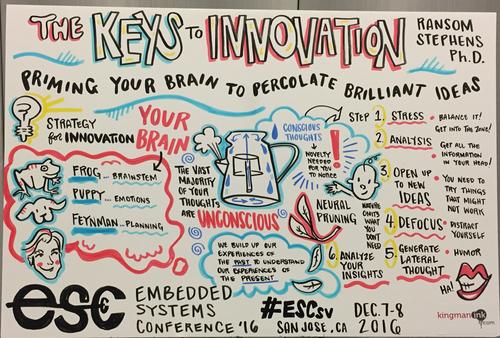 THE KEYS TO INNOVATION
RANSOM
STEPHENS
Ph.D.
PRIMING YOUR BRAIN TO PERCOLATE BRILLIANT IDEAS
STRATEGY
for INNOVATION
YOUR
BRAIN
FROG... BRAINSTEM
PUPPY... EMOTIONS
FEYNMAN... PLANNING
THE VAST
MAJORITY
OF YOUR
THOUGHTS
ARE
UNCONSCIOUS
CONSCIOUS
THOUGHTS
NOVELTY
NEEDED
FOR YOU
TO NOTICE
!
NEURAL
PRUNING
NATURE
CHUCKS WHAT
YOU
DON'T
NEED
WE BUILD UP OUR
EXPERIENCES OF
THE PAST TO UNDERSTAND
OUR EXPERIENCES OF
THE PRESENT
STEP 1. STRESS • BALANCE IT!
GET INTO THE ZONE!
2. ANALYSIS • GET ALL THE
INFORMATION
IN YOUR HEAD!
3. OPEN UP
TO NEW
IDEAS
• YOU NEED TO
TRY THINGS
THAT MIGHT
NOT WORK
4. DEFOCUS • DISTRACT
YOURSELF
5. GENERATE
LATERAL
THOUGHT
• HUMOR
HA!
6. ANALYZE
YOUR
INSIGHTS
esc
EMBEDDED
SYSTEMS
CONFERENCE '16
#ESCsv
SAN JOSE, CA
DEC. 7-8
2016
kingmanink
.com